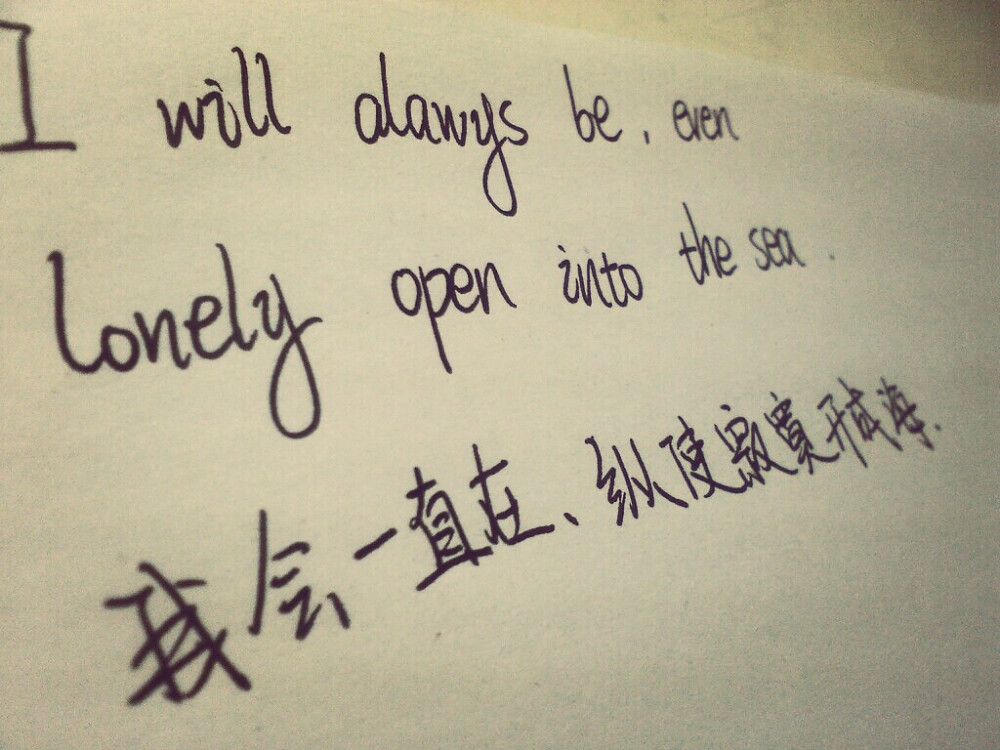 I will alawys be, even
lonely open into the sea.
我会一直在、纵使寂寞开成海.